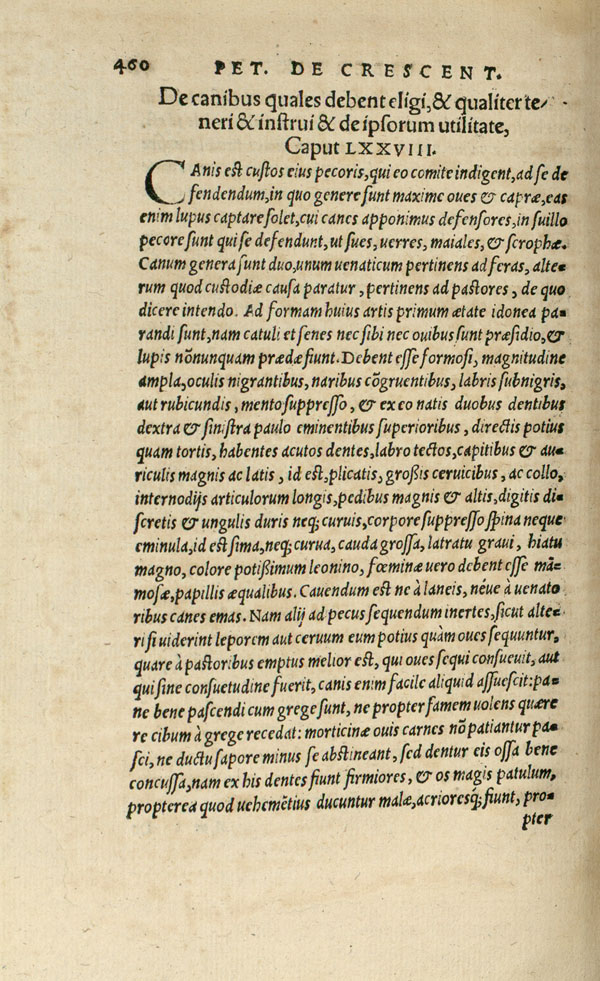 460 PET. DE CRESCENT.
De canibus quales debent eligi, & qualiter te⸗
neri & instrui & de ipsorum utilitate,
Caput LXXVIII.
CAnis est custos eius pecoris, qui eo comite indigent, ad se de
fendendum, in quo genere sunt maxime oues & capræ, eas
enim lupus captare solet, cui canes apponimus defensores, in suillo
pecore sunt qui se defendunt, ut sues, uerres, maiales, & scrophæ.
Canum genera sunt duo, unum uenaticum pertinens ad feras, alte⸗
rum quod custodiæ causa paratur, pertinens ad pastores, de quo
dicere intendo. Ad formam huius artis primum ætate idonea pa⸗
randi sunt, nam catuli et senes nec sibi nec ouibus sunt præsidio, &
lupis nōnunquam prædæ fiunt. Debent esse formosi, magnitudine
ampla, oculis nigrantibus, naribus cōgruentibus, labris subnigris,
aut rubicundis, mento suppresso, & ex eo natis duobus dentibus
dextra & sinistra paulo eminentibus superioribus, directis potius
quam tortis, habentes acutos dentes, labro tectos, capitibus & au⸗
riculis magnis ac latis, id est, plicatis, grossis ceruicibus, ac collo,
internodijs articulorum longis, pedibus magnis & altis, digitis di⸗
scretis & ungulis duris neq; curuis, corpore suppresso spina neque
eminula, id est sima, neq; curua, cauda grossa, latratu graui, hiatu
magno, colore potissimum leonino, fœminæ uero debent esse mā⸗
mosæ, papillis æqualibus. Cauendum est ne à laneis, néue à uenato
ribus canes emas. Nam alij ad pecus sequendum inertes, sicut alte⸗
ri si uiderint leporem aut ceruum eum potius quàm oues sequuntur,
quare à pastoribus emptus melior est, qui oues sequi consueuit, aut
qui sine consuetudine fuerit, canis enim facile aliquid assuescit: pa⸗
ne bene pascendi cum grege sunt, ne propter famem uolens quære
re cibum à grege recedat: morticinæ ouis carnes nō patiantur pa⸗
sci, ne ductu sapore minus se abstineant, sed dentur eis ossa bene
concussa, nam ex his dentes fiunt firmiores, & os magis patulum,
propterea quod uehemētius ducuntur malæ, acrioresq; fiunt, pro⸗
pter